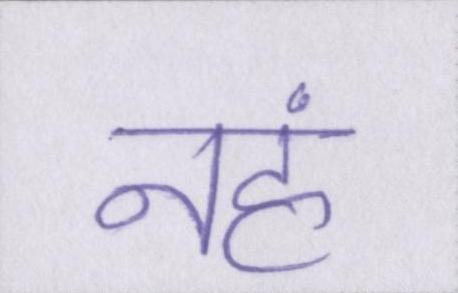 नहं